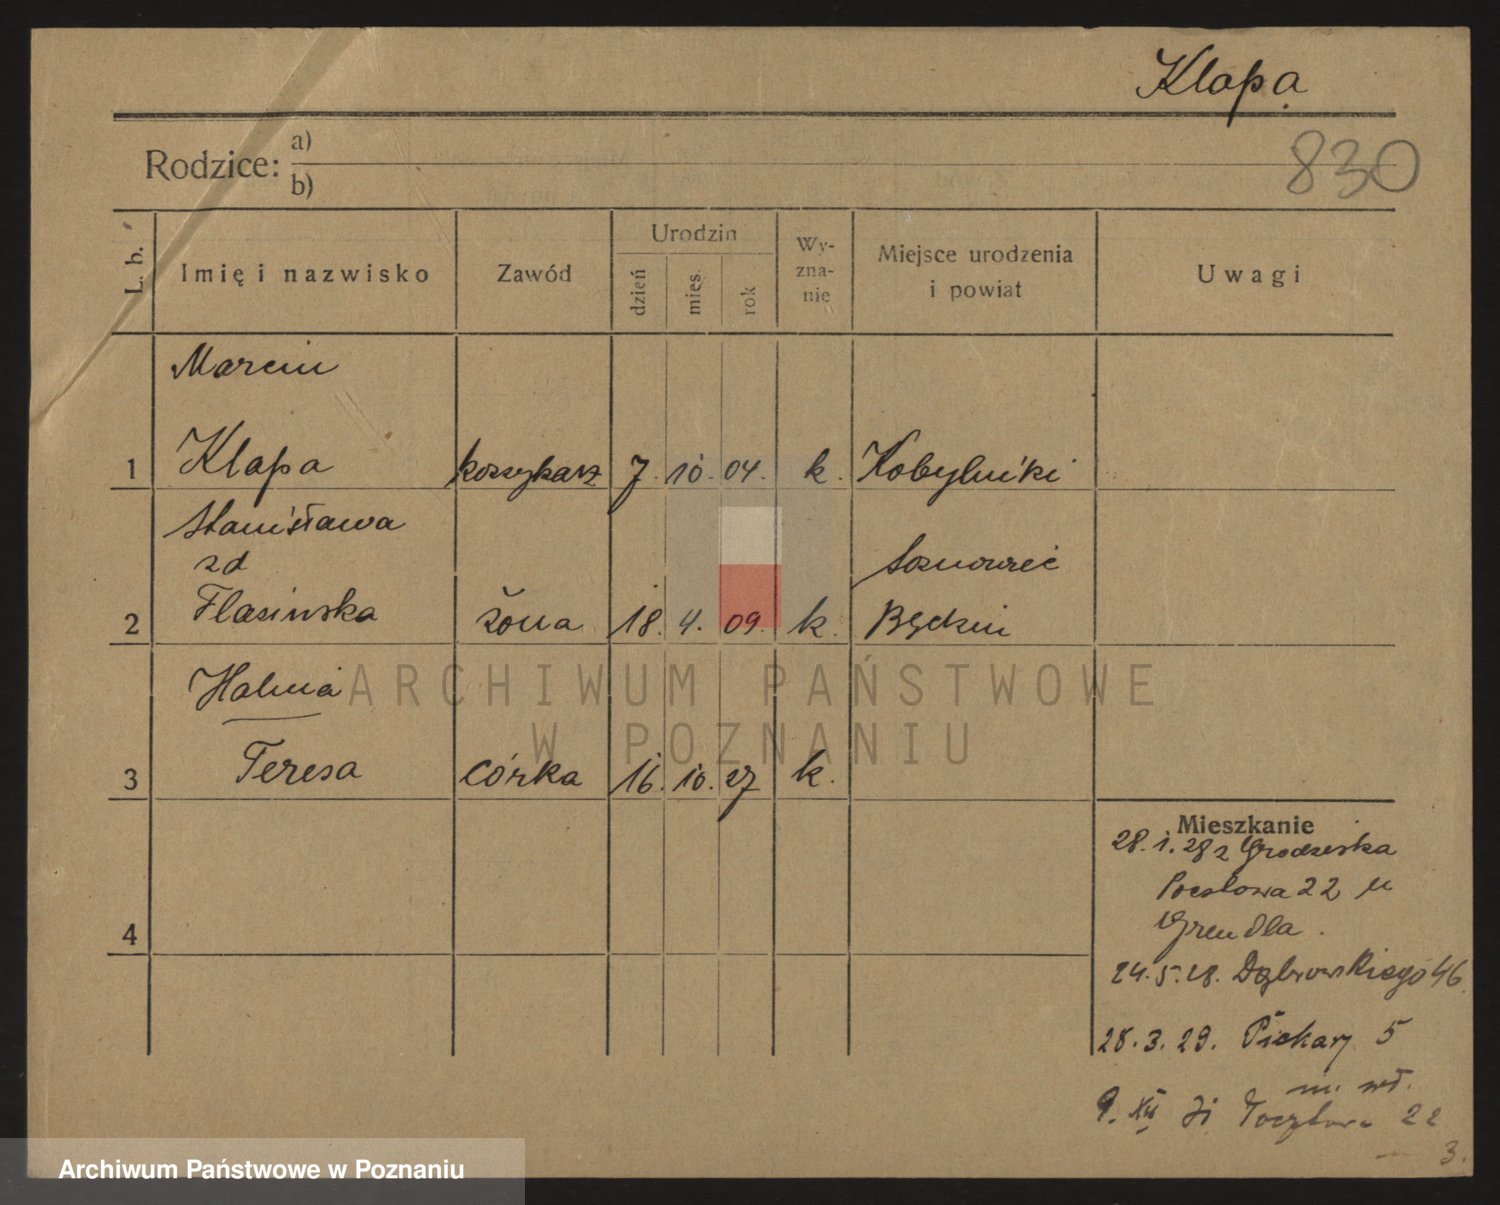 Klapa
830
Rodzice: a)
b)
L. b. Imię i nazwisko Zawód Urodzin dzień mies. rok Wy-zna-nie Miejsce urodzenia i powiat Uwagi
Marcin
1 Klapa koszykarz 7. 10. 04. k. Kobylniki
Stanisława
zd Sosnowiec
2 Flasińska żona 18. 4. 09. k. Będzin
Halina
Teresa
3 córka 16. 10. 27 k.
Mieszkanie
28. 1. 28 z Grodziska
Pocztowa 22 u
Grendla.
4
24. 5. 28. Dąbrowskiego 46.
28. 3. 29. Piekary 5
9. XII Pocztowa 22
3.
ARCHIWUM PAŃSTWOWE
W POZNANIU
Archiwum Państwowe w Poznaniu